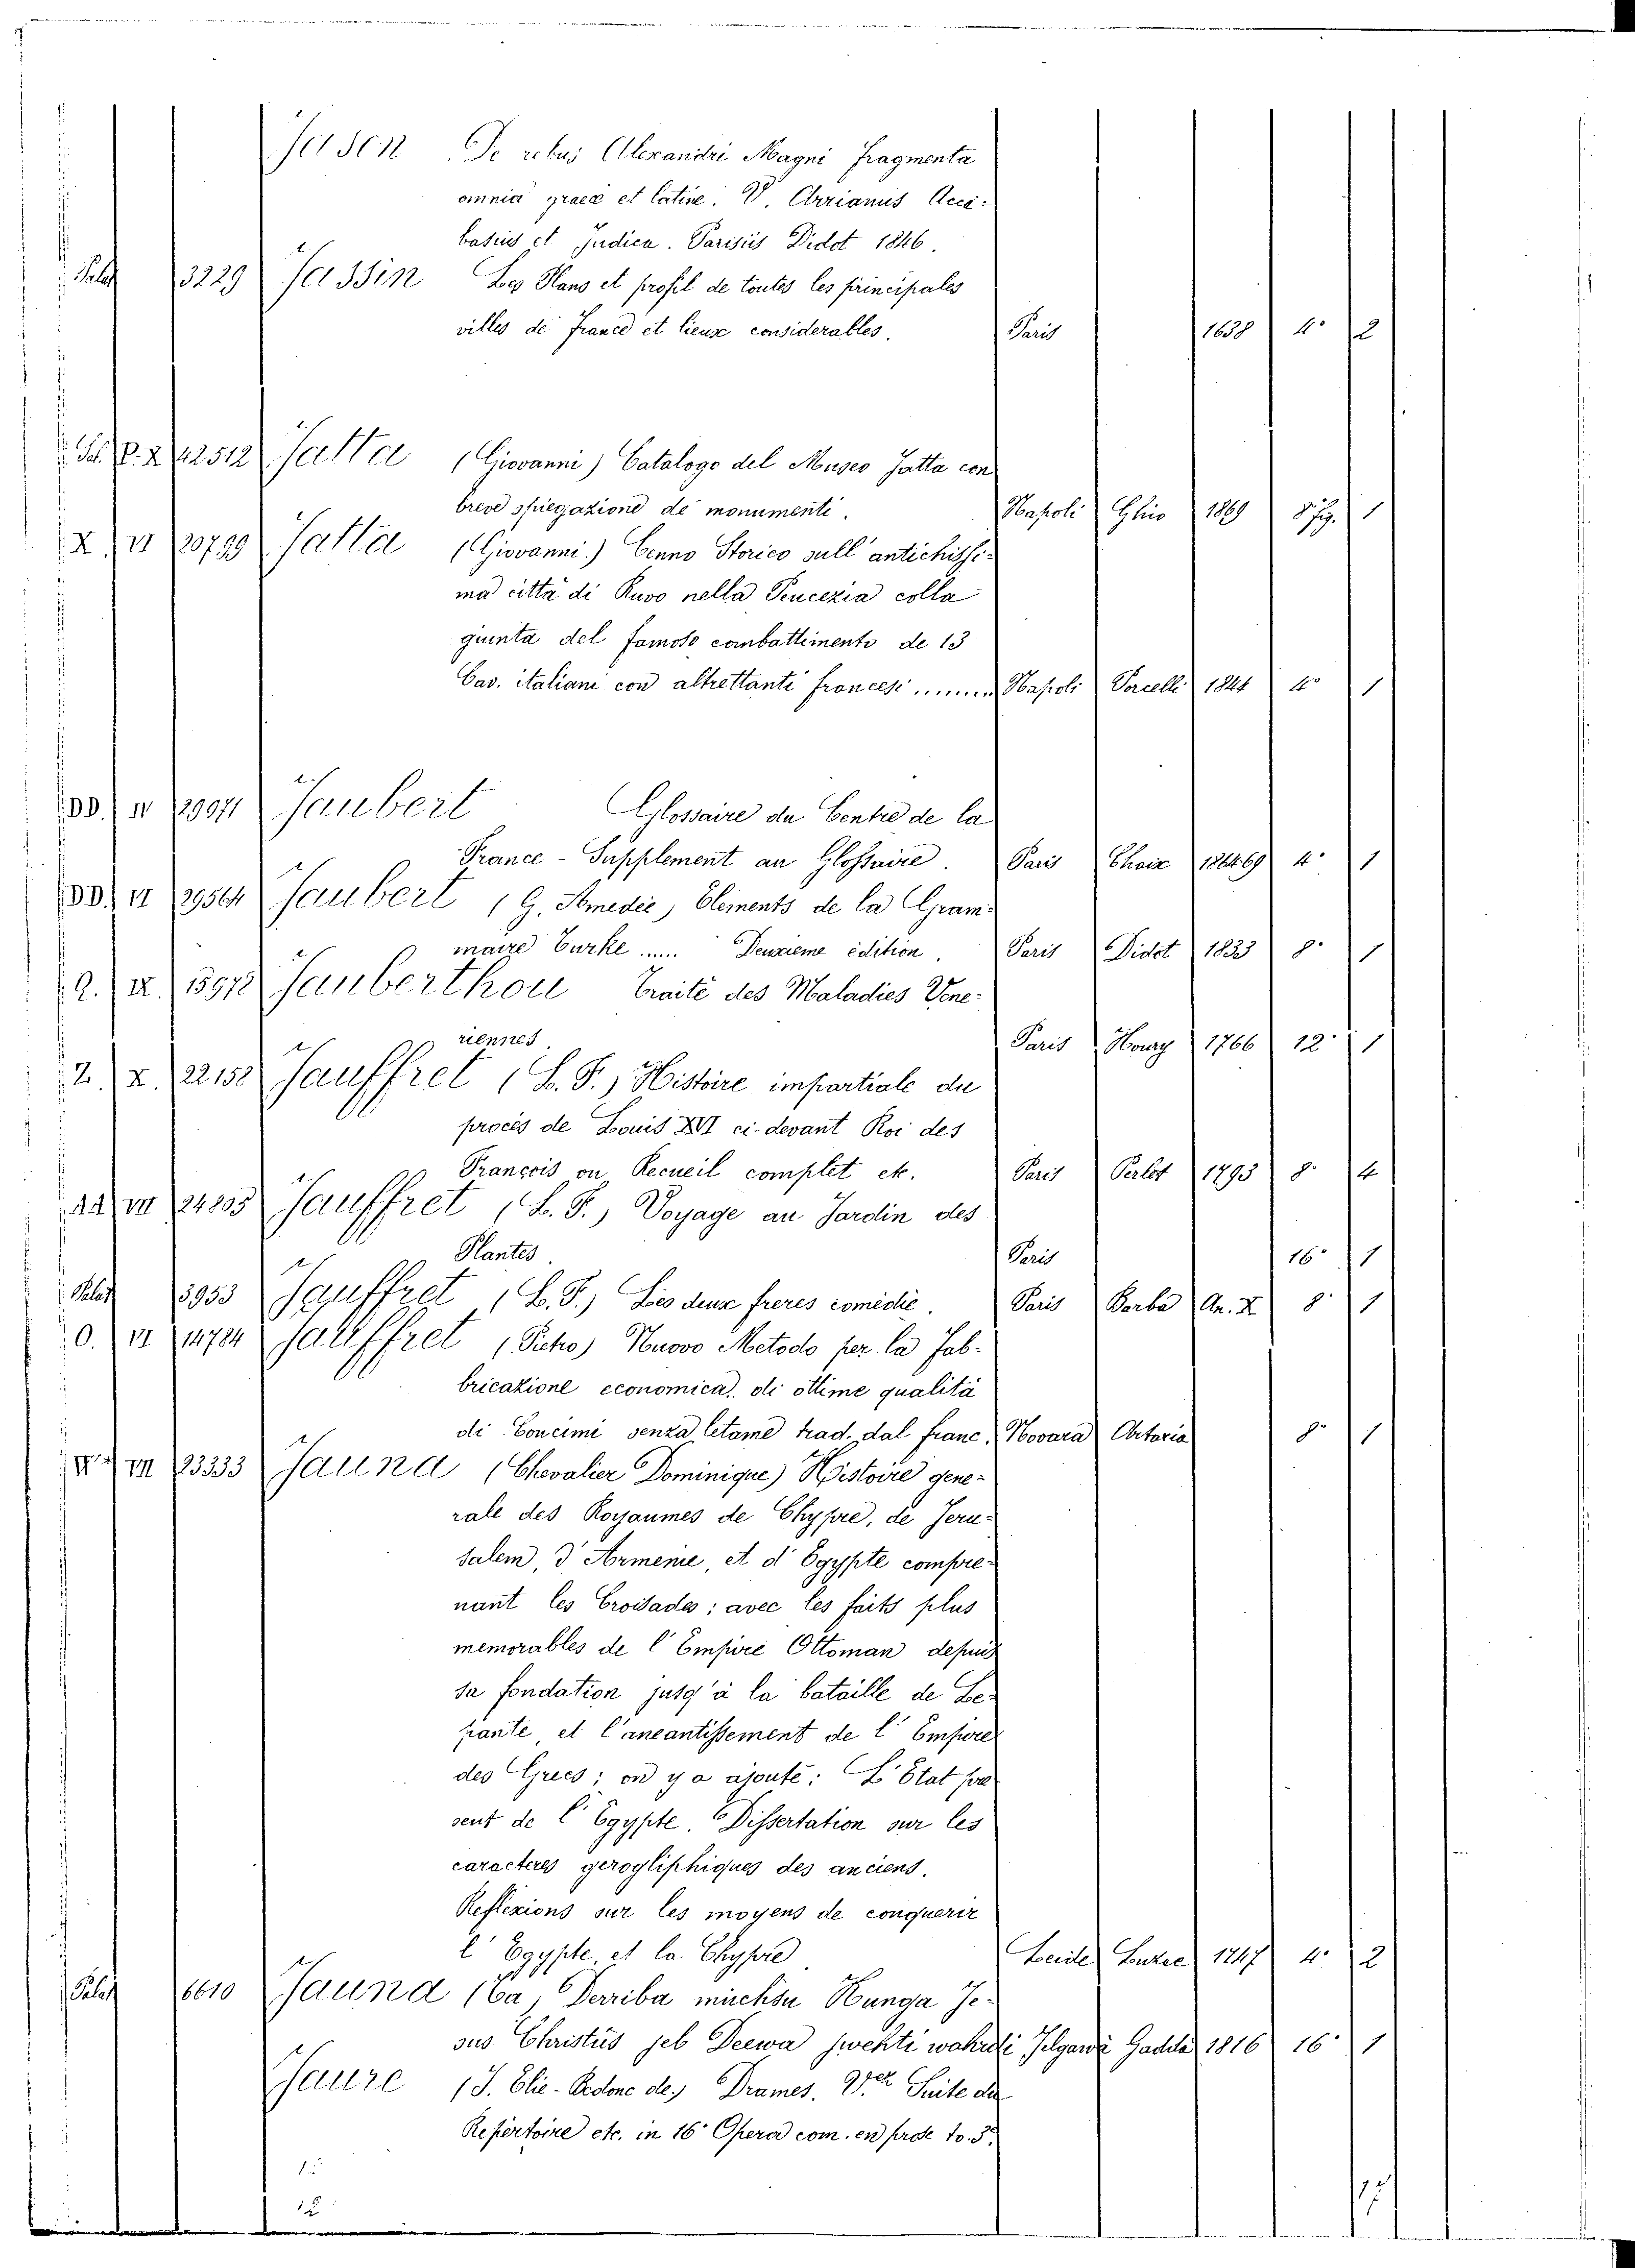 Jason De rebus Alexandri Magni fragmenta
omnia graece et latine. V. Arrianus
et Judica. Parisiis Didot 1846.
Palat 3229 Jassin Les Plans et profil de toutes les principales
villes de France et lieux considerables. Paris 1638 4° 2
P. X 42512 Jatta (Giovanni) Catalogo del Museo Jatta con
breve spiegazione de monumenti. Napoli Ghio 1869 8° fig. 1
X VI 20799 Jatta (Giovanni) Cenno Storico sull' antichissi-
ma città di Ruvo nella Peucezia colla
giunta del famoso combattimento de 13
Cav. italiani con altrettanti francesi ...... Napoli Porcelli 1844 4° 1
DD. IV 29971 Jaubert Glossaire du Centre de la
France - Supplement au Glossaire. Paris Chaix 186469 4° 1
DD. VI 29564 Jaubert (G. Amedée) Elements de la Gram-
maire Turke ..... Deuxieme édition. Paris Didot 1833 8° 1
Q. IX. 15978 Jauberthou Traité des Maladies Vene-
riennes. Paris Houry 1766 12° 1
Z. X. 22158 Jauffret (L. F.) Histoire impartiale du
procès de Louis XVI ci-devant Roi des
François ou Recueil complet etc. Paris Perlet 1793 8° 4
AA VIII 24805 Jauffret (L. F.) Voyage au Jardin des
Plantes. Paris 16° 1
Palat 3953 Jauffret (L. F.) Les deux freres comédie. Paris Barba An. X 8° 1
O. VI 14784 Jauffret (Petro) Nuovo Metodo per la fab-
bricazione economica, di ottime qualità
di Concimi senza letame trad. dal franc. Novara Artaria 8° 1
VIII 23333 Jauna (Chevalier Dominique) Histoire gene-
rale des Royaumes de Chypre, de Jeru-
salem, d'Armenie, et d'Egypte compre-
nant les Croisades; avec les faits plus
memorables de l'Empire Ottoman depuis
sa fondation jusq'à la bataille de Le-
pante, et l'aneantissement de l'Empire
des Grecs; on y a ajouté: L'Etat pre
sent de l'Egypte. Dissertation sur les
caracteres gerogliphiques des anciens.
Reflexions sur les moyens de conquerir
l'Egypte, et la Chypre. Leide Luzac 1747 4° 2
Palat 6610 Jauna (Ta, Derriba muchsu Kunga Je-
sus Christus jeb Deewa swehti wahrdi Jelgawâ Gaddâ 1816 16° 1
Jaure (J. Elie-Bedone de) Drames. V. Suite du
Repertoire etc. in 16° Opera com. en prose to. 5°.
12
17